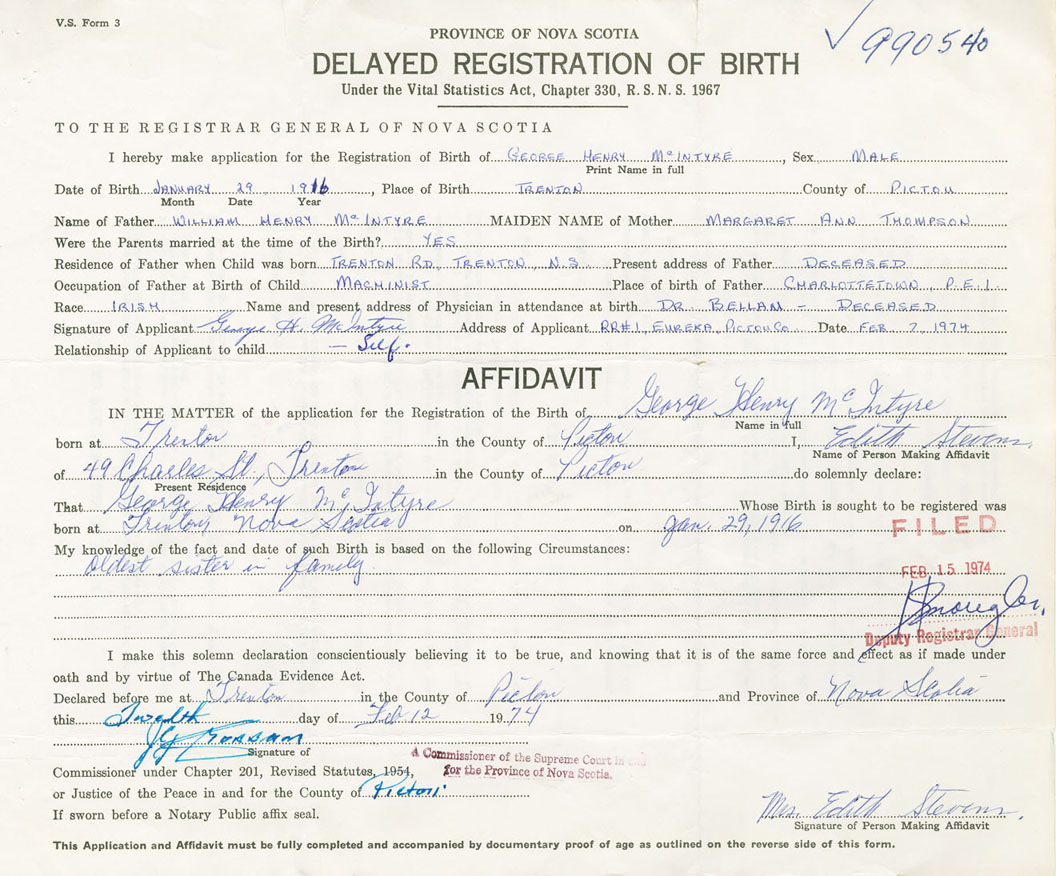 V.S. Form 3
990540
PROVINCE OF NOVA SCOTIA
DELAYED REGISTRATION OF BIRTH
Under the Vital Statistics Act, Chapter 330, R. S. N. S. 1967
TO THE REGISTRAR GENERAL OF NOVA SCOTIA
I hereby make application for the Registration of Birth of GEORGE HENRY McINTYRE, Sex MALE
Print Name in full
Date of Birth JANUARY 29 1916, Place of Birth TRENTON County of PICTOU
Month Date Year
Name of Father WILLIAM HENRY McINTYRE MAIDEN NAME of Mother MARGARET ANN THOMPSON
Were the Parents married at the time of the Birth? YES
Residence of Father when Child was born TRENTON RD, TRENTON, N.S. Present address of Father DECEASED
Occupation of Father at Birth of Child MACHINIST Place of birth of Father CHARLOTTETOWN, P.E.I.
Race IRISH Name and present address of Physician in attendance at birth DR. BELLAN - DECEASED
Signature of Applicant George H. McIntyre Address of Applicant RR#1, EUREKA, PICTOU Co. Date FEB 7, 1974
Relationship of Applicant to child - Self.
AFFIDAVIT
IN THE MATTER of the application for the Registration of the Birth of George Henry McIntyre
Name in full
born at Trenton in the County of Pictou I, Edith Stevens,
Name of Person Making Affidavit
of 49 Charles St., Trenton in the County of Pictou do solemnly declare:
Present Residence
That George Henry McIntyre Whose Birth is sought to be registered was
born at Trenton, Nova Scotia on Jan. 29, 1916
FILED
My knowledge of the fact and date of such Birth is based on the following Circumstances:
Oldest sister in family
FEB 15 1974
Deputy Registrar General
I make this solemn declaration conscientiously believing it to be true, and knowing that it is of the same force and effect as if made under
oath and by virtue of The Canada Evidence Act.
Declared before me at Trenton in the County of Pictou and Province of Nova Scotia
this Twelfth day of Feb 12 1974
Signature of
A Commissioner of the Supreme Court in
for the Province of Nova Scotia.
Commissioner under Chapter 201, Revised Statutes, 1954,
or Justice of the Peace in and for the County of Pictou
If sworn before a Notary Public affix seal.
Mrs. Edith Stevens.
Signature of Person Making Affidavit
This Application and Affidavit must be fully completed and accompanied by documentary proof of age as outlined on the reverse side of this form.